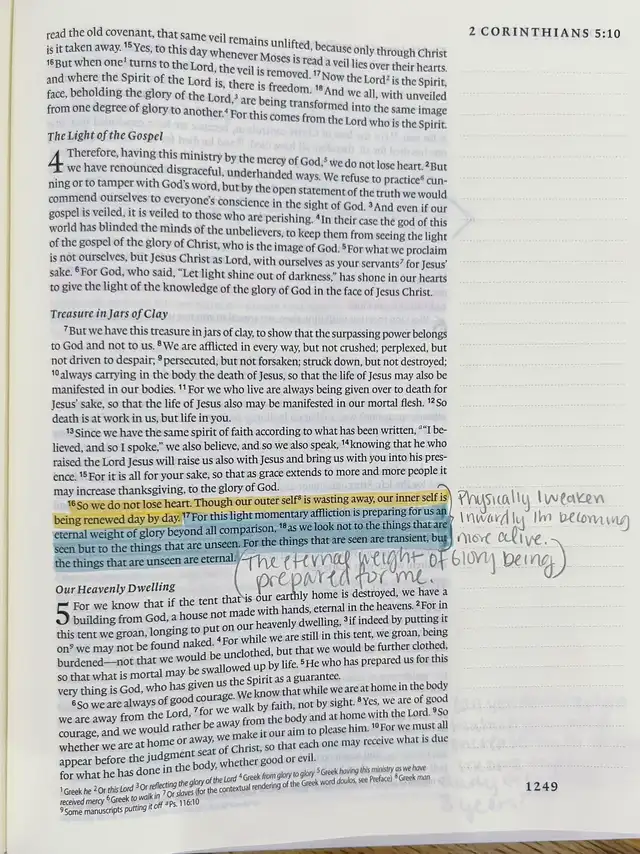 read the old covenant, that same veil remains unlifted, because only through Christ
is it taken away. ¹⁵Yes, to this day whenever Moses is read a veil lies over their hearts.
¹⁶But when one¹ turns to the Lord, the veil is removed. ¹⁷Now the Lord² is the Spirit,
and where the Spirit of the Lord is, there is freedom. ¹⁸And we all, with unveiled
face, beholding the glory of the Lord,³ are being transformed into the same image
from one degree of glory to another.⁴ For this comes from the Lord who is the Spirit.
2 CORINTHIANS 5:10
The Light of the Gospel
4 Therefore, having this ministry by the mercy of God,⁵ we do not lose heart. ²But
we have renounced disgraceful, underhanded ways. We refuse to practice⁶ cun-
ning or to tamper with God's word, but by the open statement of the truth we would
commend ourselves to everyone's conscience in the sight of God. ³And even if our
gospel is veiled, it is veiled to those who are perishing. ⁴In their case the god of this
world has blinded the minds of the unbelievers, to keep them from seeing the light
of the gospel of the glory of Christ, who is the image of God. ⁵For what we proclaim
is not ourselves, but Jesus Christ as Lord, with ourselves as your servants⁷ for Jesus'
sake. ⁶For God, who said, "Let light shine out of darkness," has shone in our hearts
to give the light of the knowledge of the glory of God in the face of Jesus Christ.
Treasure in Jars of Clay
⁷But we have this treasure in jars of clay, to show that the surpassing power belongs
to God and not to us. ⁸We are afflicted in every way, but not crushed; perplexed, but
not driven to despair; ⁹persecuted, but not forsaken; struck down, but not destroyed;
¹⁰always carrying in the body the death of Jesus, so that the life of Jesus may also be
manifested in our bodies. ¹¹For we who live are always being given over to death for
Jesus' sake, so that the life of Jesus also may be manifested in our mortal flesh. ¹²So
death is at work in us, but life in you.
¹³Since we have the same spirit of faith according to what has been written, ᵃ"I be-
lieved, and so I spoke," we also believe, and so we also speak, ¹⁴knowing that he who
raised the Lord Jesus will raise us also with Jesus and bring us with you into his pres-
ence. ¹⁵For it is all for your sake, so that as grace extends to more and more people it
may increase thanksgiving, to the glory of God.
¹⁶So we do not lose heart. Though our outer self⁸ is wasting away, our inner self is
being renewed day by day. ¹⁷For this light momentary affliction is preparing for us an
eternal weight of glory beyond all comparison, ¹⁸as we look not to the things that are
seen but to the things that are unseen. For the things that are seen are transient, but
the things that are unseen are eternal.
Physically I weaken
inwardly I'm becoming
more alive.
(The eternal weight of Glory being
prepared for me.)
Our Heavenly Dwelling
5 For we know that if the tent that is our earthly home is destroyed, we have a
building from God, a house not made with hands, eternal in the heavens. ²For in
this tent we groan, longing to put on our heavenly dwelling, ³if indeed by putting it
on⁹ we may not be found naked. ⁴For while we are still in this tent, we groan, being
burdened—not that we would be unclothed, but that we would be further clothed,
so that what is mortal may be swallowed up by life. ⁵He who has prepared us for this
very thing is God, who has given us the Spirit as a guarantee.
⁶So we are always of good courage. We know that while we are at home in the body
we are away from the Lord, ⁷for we walk by faith, not by sight. ⁸Yes, we are of good
courage, and we would rather be away from the body and at home with the Lord. ⁹So
whether we are at home or away, we make it our aim to please him. ¹⁰For we must all
appear before the judgment seat of Christ, so that each one may receive what is due
for what he has done in the body, whether good or evil.
¹Greek he ²Or this Lord ³Or reflecting the glory of the Lord ⁴Greek from glory to glory ⁵Greek having this ministry as we have
received mercy ⁶Greek to walk in ⁷Or slaves (for the contextual rendering of the Greek word doulos, see Preface) ⁸Greek man
⁹Some manuscripts putting it off ᵃPs. 116:10
1249